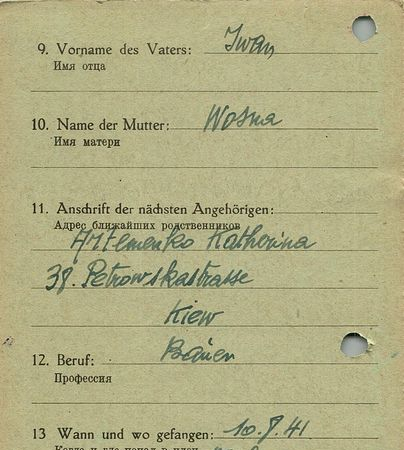 9. Vorname des Vaters: Iwan
Имя отца
10. Name der Mutter: Wosna
Имя матери
11. Anschrift der nächsten Angehörigen:
Адрес ближайших родственников
Artemenko Katherina
38. Petrowskastrasse
Kiew
12. Beruf: Bauer
Профессия
13 Wann und wo gefangen: 10.8.41